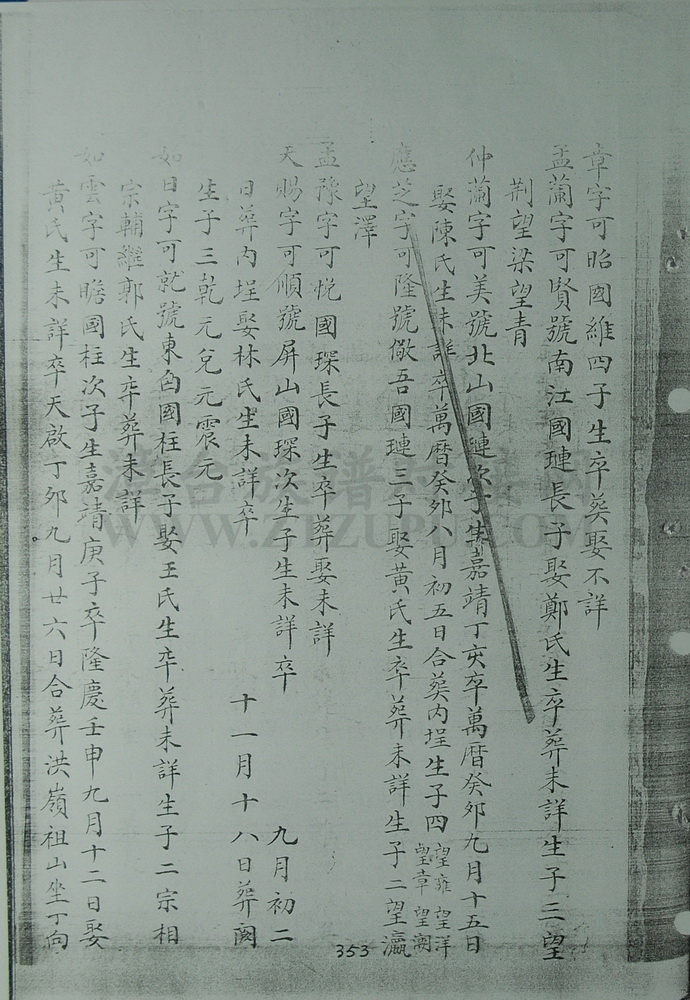 章字可昭國維四子生卒葬娶不詳
孟蘭字可賢號南江國璉長子娶鄭氏生卒葬未詳生子三望
荆望梁望青
仲蘭字可美號北山國璉次子生嘉靖丁亥卒萬曆癸夘九月十五日
娶陳氏生未詳卒萬曆癸夘八月初五日合葬内埕生子四望雍望洋望章望澜
應芝字可隆號儆吾國璉三子娶黃氏生卒葬未詳生子二望瀛
望澤
孟豫字可悦國琛長子生卒葬娶未詳
天賜字可順號屏山國琛次生子生未詳卒 九月初二
日葬内埕娶林氏生未詳卒 十一月十八日葬
生子三乾元兌元震元
如日字可就號東白國柱長子娶王氏生卒葬未詳生子二宗相
宗輔繼郭氏生卒葬未詳
如雲字可瞻國柱次子生嘉靖庚子卒隆慶壬申九月十二日娶
黃氏生未詳卒天啟丁夘九月廿六日合葬洪嶺祖山坐丁向
353
WWW.ZTZUPU.COM